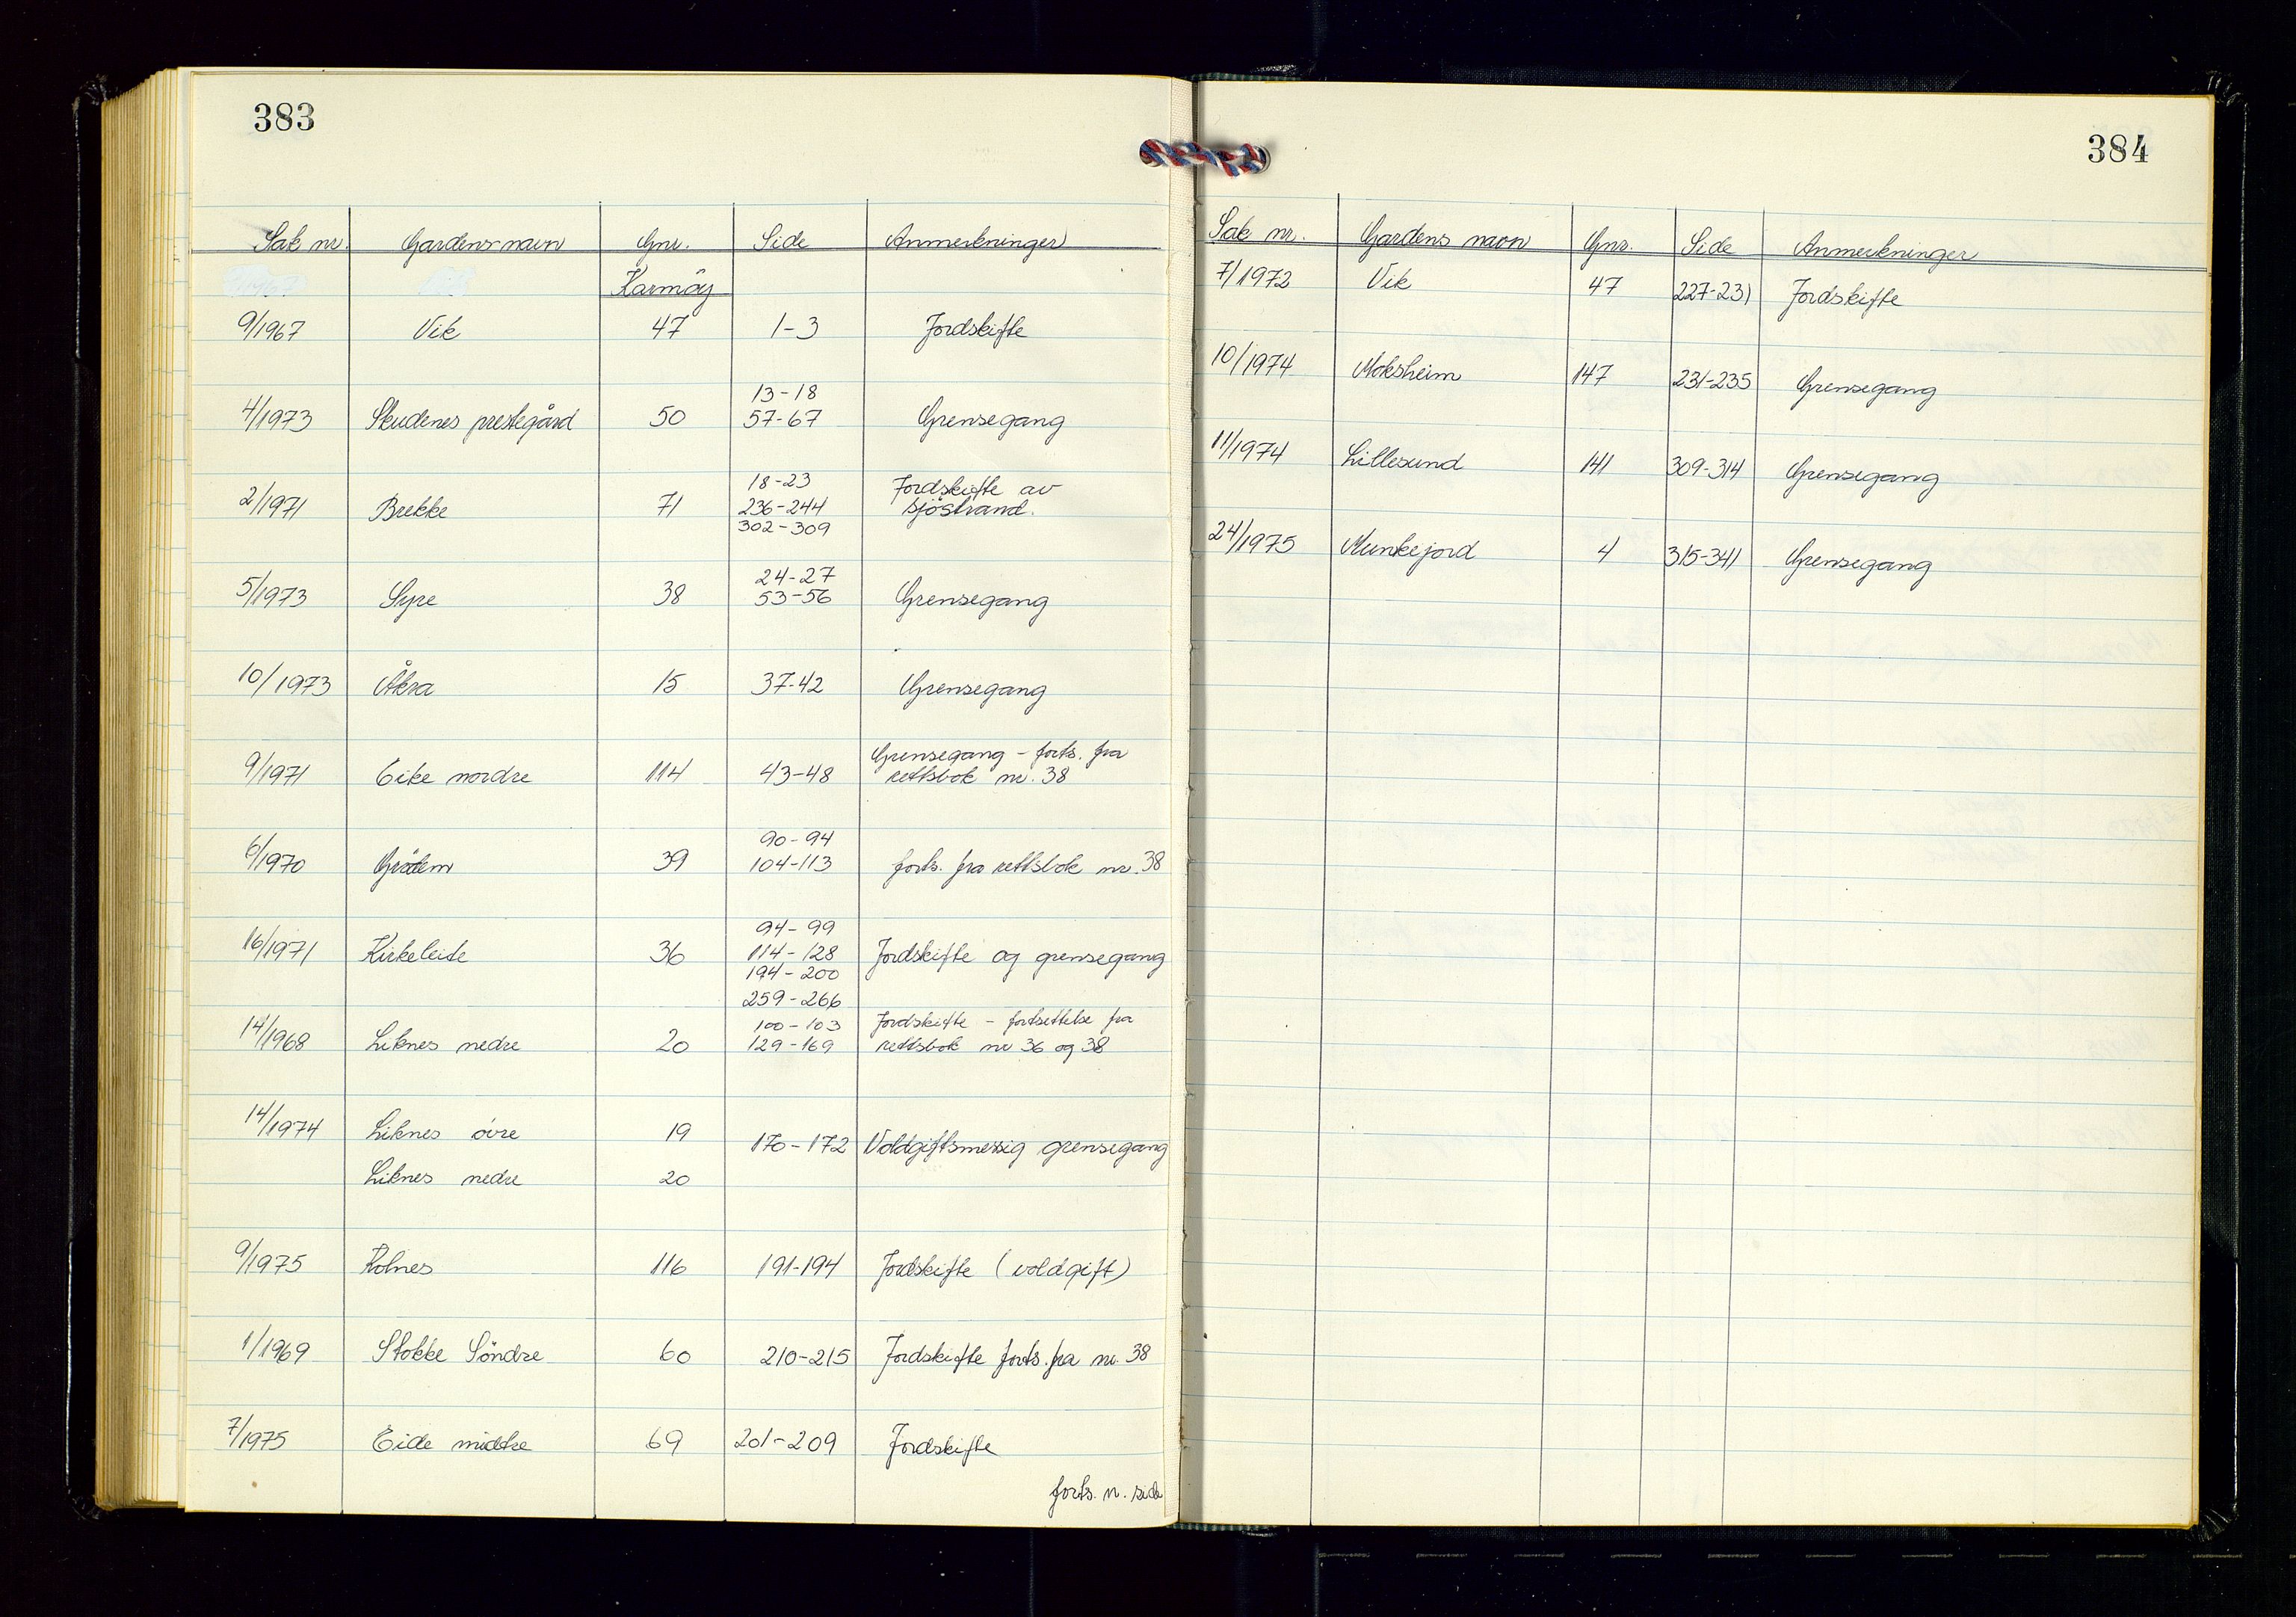 383
Sak nr. Gardens navn Gnr. Side Anmerkninger
Karmöy
9/1967 Vik 47 1-3 Jordskifte
13-18
4/1973 Skudenes prestegård 50 57-67 Grensegang
18-23 Jordskifte av
2/1971 Brekke 71 236-244 sjöstrand.
302-309
24-27
5/1973 Syre 38 53-56 Grensegang
10/1973 Åkra 15 37-42 Grensegang
Grensegang - forts. fra
9/1971 Eike nordre 114 43-48 rettsbok nr. 38
90-94
6/1970 Grödem 39 104-113 forts. fra rettsbok nr. 38
94-99
16/1971 Kirkeleite 36 114-128 Jordskifte og grensegang
194-200
259-266
100-103 Jordskifte - fortsettelse fra
14/1968 Liknes nedre 20 129-169 rettsbok nr 36 og 38
14/1974 Liknes övre 19
170-172 Voldgiftsmessig grensegang
Liknes nedre 20
9/1975 Kolnes 116 191-194 Jordskifte (voldgift)
1/1969 Stokke Söndre 60 210-215 Jordskifte forts. fra nr. 38
7/1975 Eide midtre 69 201-209 Jordskifte
forts. n. side
384
Sak nr. Gardens navn Gnr. Side Anmerkninger
7/1972 Vik 47 227-231 Jordskifte
10/1974 Moksheim 147 231-235 Grensegang
11/1974 Lillesund 141 309-314 Grensegang
24/1975 Munkejord 4 315-341 Grensegang